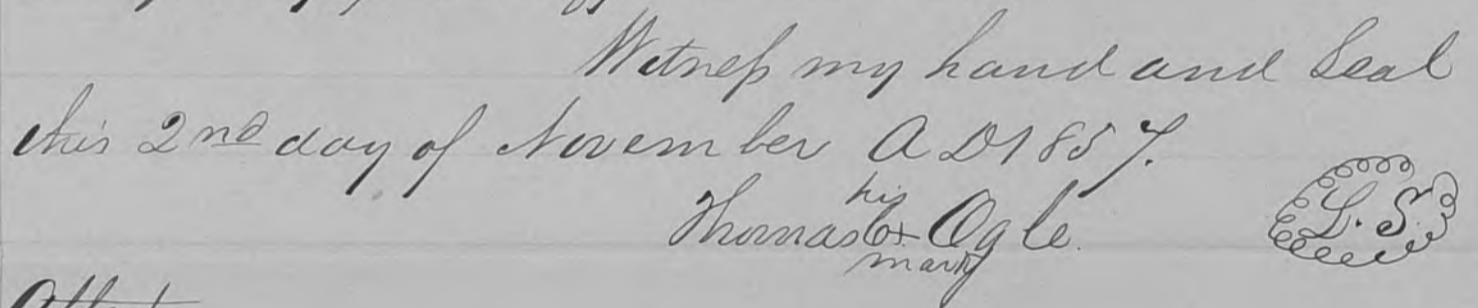 Witness my hand and Seal
this 2nd day of November A D 1857.
his
Thomas + Ogle. L. S.
mark
Attest